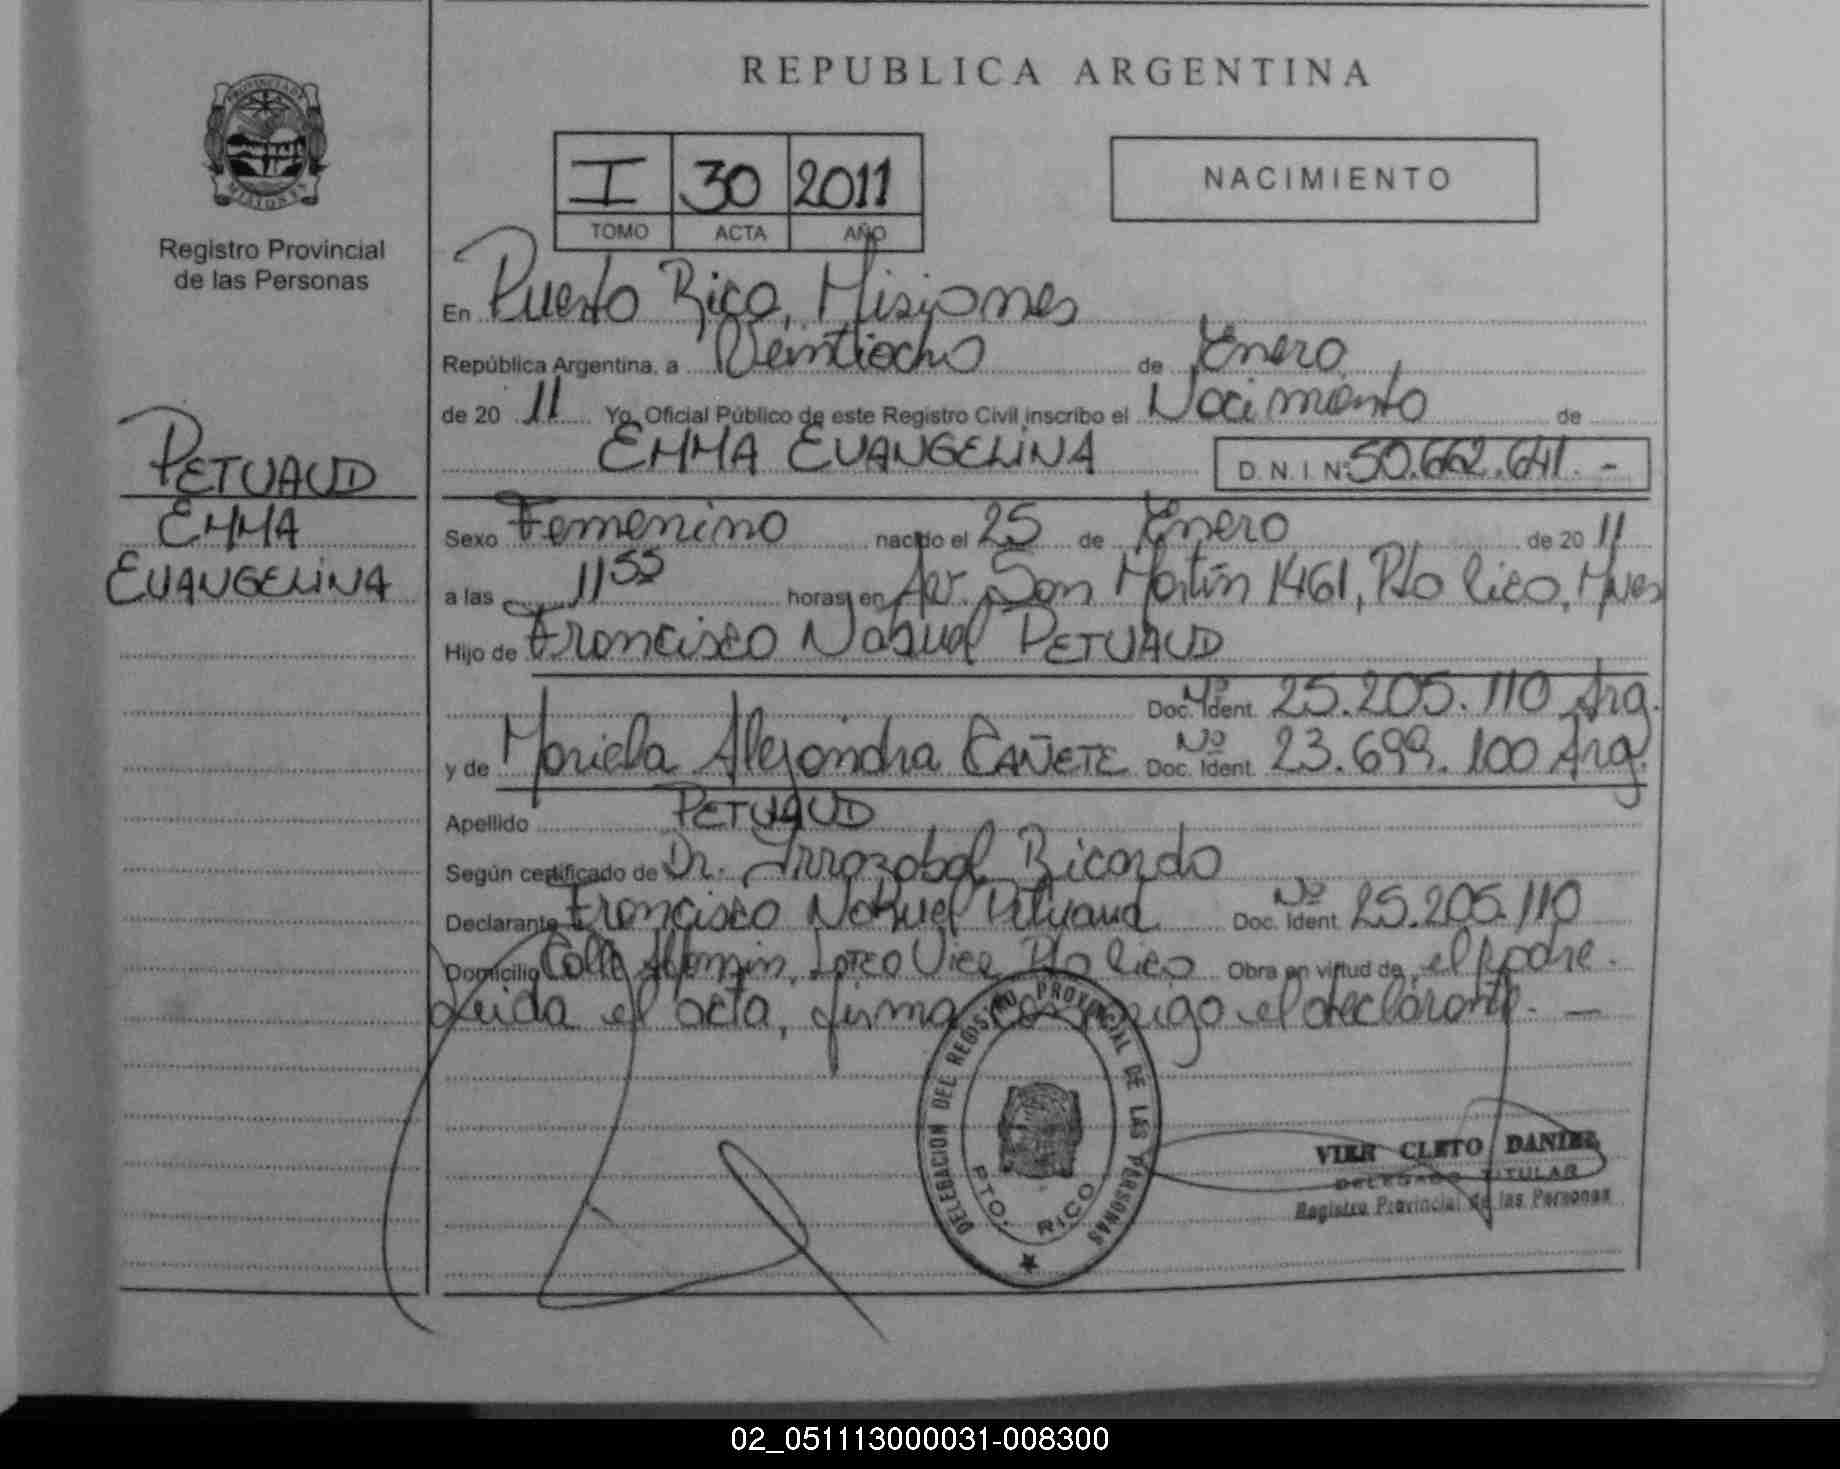 PROVINCIA DE
MISIONES
Registro Provincial
de las Personas
PETUAUD
EMMA
EVANGELINA
REPUBLICA ARGENTINA
I 30 2011
TOMO ACTA AÑO
NACIMIENTO
En Puerto Rico, Misiones
República Argentina, a Veintiocho de Enero
de 20 11 Yo, Oficial Público de este Registro Civil inscribo el Nacimiento de
EMMA EVANGELINA D.N.I. Nº 50.662.641.-
Sexo Femenino nacido el 25 de Enero de 20 11
a las 11 55 horas, en Av. San Martín 1461, Pto Rico, Mnes
Hijo de Francisco Nahuel PETUAUD
Nº
Doc. Ident. 25.205.110 Arg.
y de Mariela Alejandra CAÑETE Nº Doc. Ident. 23.699.100 Arg.
Apellido PETUAUD
Según certificado de Dr. Irrazabal Ricardo
Declarante Francisco Nahuel Petuaud Nº Doc. Ident. 25.205.110
Domicilio Calle Pto Rico Obra en virtud de el padre.
Leida el acta, firma conmigo el declarante. —
DELEGACION DEL REGISTRO PROVINCIAL DE LAS PERSONAS
PTO. RICO
VIER CLETO DANIEL
DELEGADO TITULAR
Registro Provincial de las Personas
02_051113000031-008300